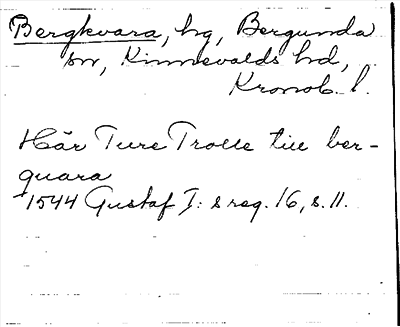 Bergkvara, hg, Bergunda
sn, Kinnevalds hd,
Kronob. l.
Här Ture Trolle till ber-
quara
1544 Gustaf I:s reg. 16, s. 11.